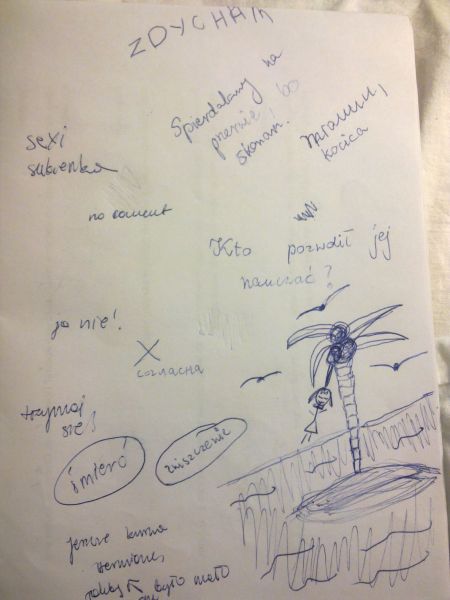 ZDYCHAM
Spierdalamy na
przerwie, bo
skonam!
mrauuu,
kocica
sexi
sukienka
no coment
Kto pozwolił jej
nauczać?
ja nie!
X
trzymaj
się!
śmierć
zniszczenie
jeszcze kurwa
było mało